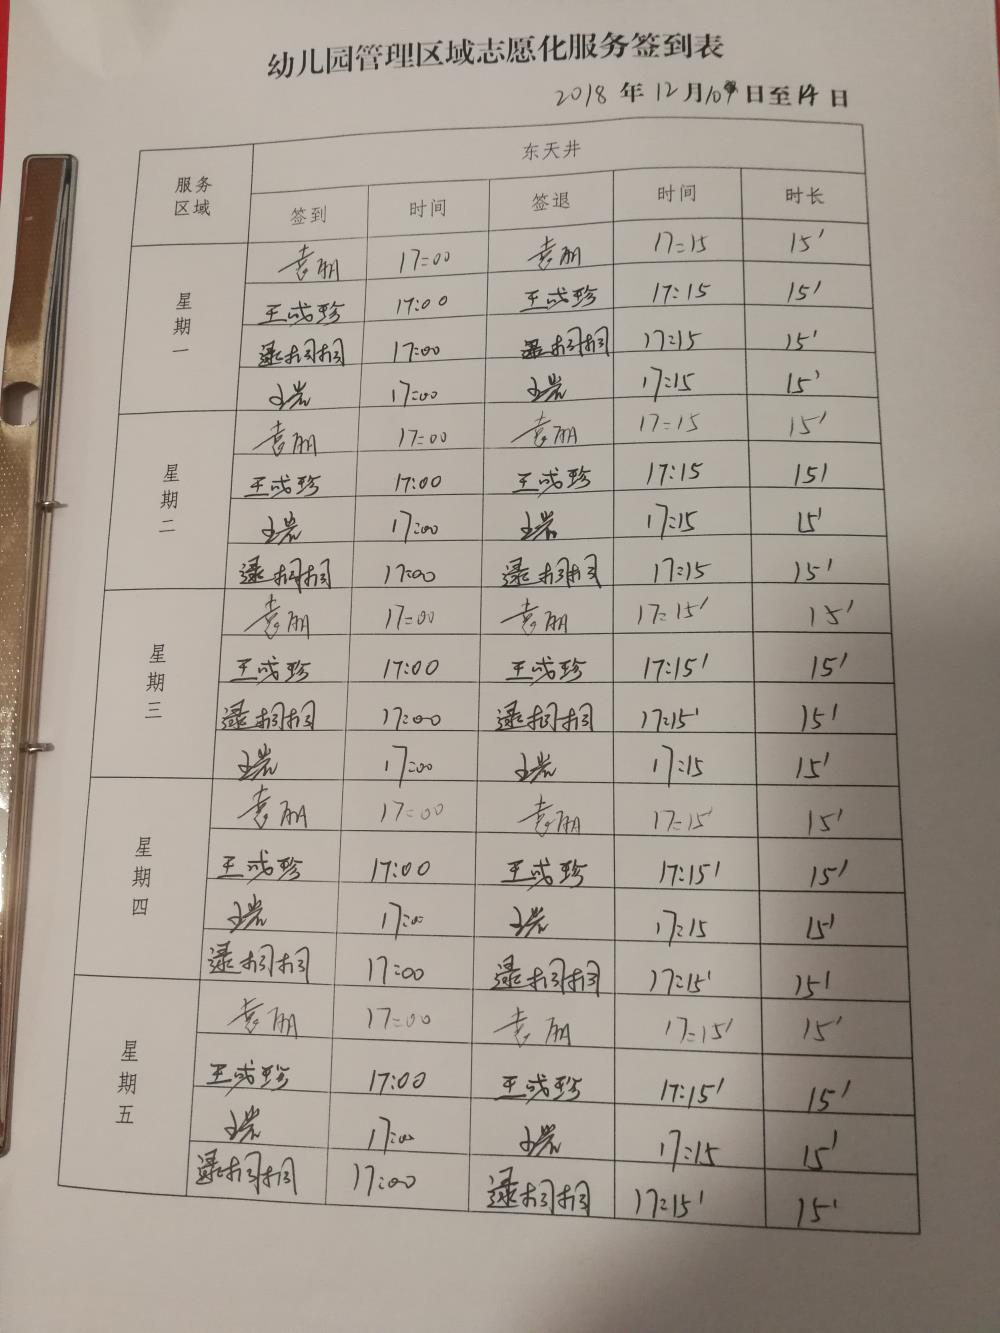 幼儿园管理区域志愿化服务签到表
2018 年 12 月 10 日至 14 日
服务区域 东天井
签到 时间 签退 时间 时长
星期一
袁丽 17:00 袁丽 17:15 15'
王成珍 17:00 王成珍 17:15 15'
逯桐桐 17:00 逯桐桐 17:15 15'
17:00 17:15 15'
星期二
袁丽 17:00 袁丽 17:15 15'
王成珍 17:00 王成珍 17:15 15'
17:00 17:15 15'
逯桐桐 17:00 逯桐桐 17:15 15'
星期三
袁丽 17:00 袁丽 17:15' 15'
王成珍 17:00 王成珍 17:15' 15'
逯桐桐 17:00 逯桐桐 17:15' 15'
17:00 17:15 15'
星期四
袁丽 17:00 袁丽 17:15' 15'
王成珍 17:00 王成珍 17:15' 15'
17:00 17:15 15'
逯桐桐 17:00 逯桐桐 17:15' 15'
星期五
袁丽 17:00 袁丽 17:15' 15'
王成珍 17:00 王成珍 17:15' 15'
17:00 17:15 15'
逯桐桐 17:00 逯桐桐 17:15' 15'